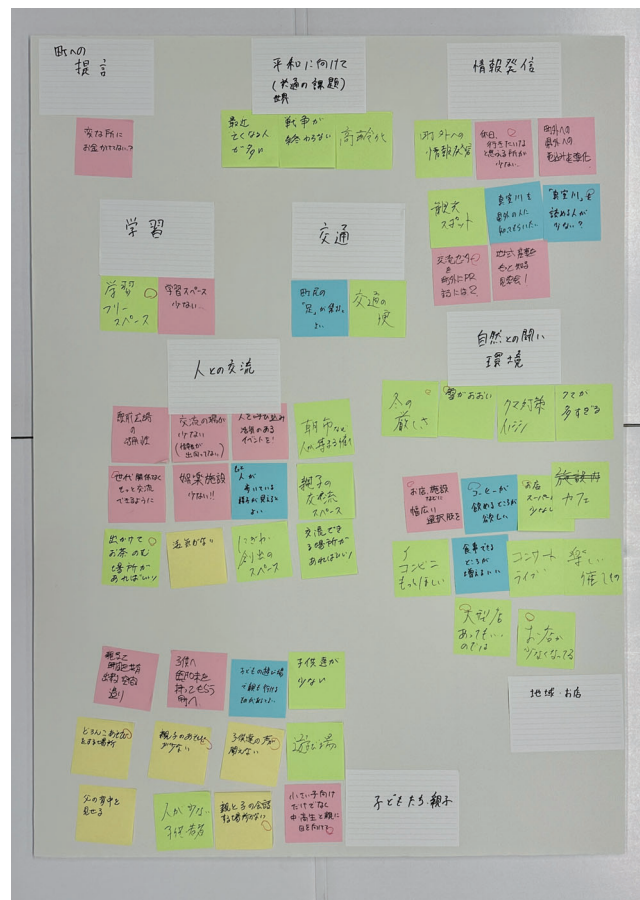 町への
提言
変な所に
お金かけてない?
平和に向けて
(共通の課題)
世界
最近
亡くなる人
が多い
戦争が
終わらない
高齢化
情報発信
町外への
情報発信
休日、
行きたいなと
思える所が
少ない
町外への
県外への
観光
スポット
真室川を
県外の人に
知ってもらいたい
「真室川」を
読める人が
少ない?
を
町外にPR
もっと知る
見学会!
学習
学習
フリー
スペース
学習スペース
少ない
交通
町民の
「足」が楽に
交通の
便
自然との闘い
環境
冬の
厳しさ
雪がおおい
クマ対策
イノシシ
クマが
多すぎる
人との交流
駅前広場
の
活用
交流の場が
少ない
人を呼び込み
活気のある
イベントを!
朝市など
人が集まる催し
世代関係なく
もっと交流
できるように
娯楽施設
少ない!!
人が
歩いている
様子が見えると
よい
親子の
交流
スペース
出かけて
お茶のむ
場所が
あればいい
活気がない
にぎわい
創出の
スペース
交流でき
る場所が
あればいい!
お店、施設
などに
幅広い
選択肢を
コーヒーが
飲めるところが
欲しい
お店
スーパー
少なし
カフェ
コンビニ
もっとほしい
食事できる
ところが
増えるといい
コンサート
ライブ
楽しい
催しもの
大型店
あっても…
のでは
お店が
少なくなってる
地域・お店
子供へ
子どもの遊び場
子供達が
少ない
どろんこあそび
をする場所
親子のあそび
が少ない
子供達の声
聞えない
遊び場
父の背中を
見せる
人が少ない
子供・若者
親と子の会話
する場所がない
小さい子向け
だけでなく
中高生と親に
目を向けて
子どもたち・親子